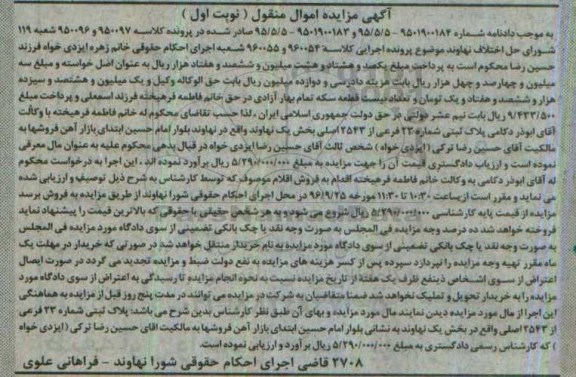 آگهی مزایده اموال منقول ( نوبت اول )
به موجب دادنامه شماره ۹۵۰۱۹۰۰۱۸۴ - ۹۵/۵/۵ و ۹۵۰۱۹۰۰۱۸۳ - ۹۵/۵/۵ صادر شده در پرونده کلاسه ۹۵۰۰۹۷ و ۹۵۰۰۹۶ شعبه ۱۱۹
شورای حل اختلاف نهاوند موضوع پرونده اجرایی کلاسه ۹۶۰۰۵۴ و ۹۶۰۰۵۵ شعبه اجرای احکام حقوقی خانم زهره ایزدی خواه فرزند
حسین رضا محکوم است به پرداخت مبلغ یکصد و هشتاد و هشت میلیون و ششصد و هفتاد هزار ریال به عنوان اصل خواسته و مبلغ سه
میلیون و چهارصد و چهل هزار ریال بابت هزینه دادرسی و دوازده میلیون ریال بابت حق الوکاله وکیل و یک میلیون و هشتصد و سیزده
هزار و ششصد و هفتاد و یک تومان و تعداد بیست قطعه سکه تمام بهار آزادی در حق خانم فاطمه فرهیخته فرزند اسمعلی و پرداخت مبلغ
۹/۴۳۳/۵۰۰ ریال بابت نیم عشر دولتی در حق دولت جمهوری اسلامی ایران ، لذا حسب تقاضای محکوم له خانم فاطمه فرهیخته با وکالت
آقای ابوذر دکامی پلاک ثبتی شماره ۲۳ فرعی از ۲۵۴۳ اصلی بخش یک نهاوند واقع در نهاوند بلوار امام حسین ابتدای بازار آهن فروشها به
مالکیت آقای حسین رضا ترکی ( ایزدی خواه ) شخص ثالث آقای حسین رضا ایزدی خواه در قبال بدهی محکوم علیه به عنوان مال معرفی
نموده است و ارزیاب دادگستری قیمت آن را جهت مزایده به مبلغ ۵/۲۹۰/۰۰۰/۰۰۰ ریال برآورد نموده اند . این اجرا به درخواست محکوم
له آقای ابوذر دکامی به وکالت خانم فاطمه فرهیخته اقدام به فروش اقلام موصوف که توسط کارشناس به شرح ذیل توصیف و ارزیابی شده
می نماید و مقرر است از ساعت ۱۰:۳۰ تا ۱۱:۳۰ مورخه ۹۶/۹/۲۵ در محل اجرای احکام حقوقی شورا نهاوند از طریق مزایده به فروش برسد
مزایده از قیمت پایه کارشناسی ۵/۲۹۰/۰۰۰/۰۰۰ ریال شروع می شود و به هر شخص حقیقی یا حقوقی که بالاترین قیمت را پیشنهاد نماید
فروخته خواهد شد ده درصد وجه مزایده فی المجلس به صورت وجه نقد یا چک بانکی تضمینی از سوی دادگاه مورد مزایده فی المجلس
به صورت وجه نقد یا چک بانکی تضمینی از سوی دادگاه مورد مزایده به نام خریدار منتقل خواهد شد در صورتی که خریدار در مهلت یک
ماه مقرر تهیه وجه مزایده را نپردازد سپرده پس از کسر هزینه های مزایده به نفع دولت ضبط و مزایده تجدید می گردد در صورت ایصال
اعتراض از سوی اشخاص ذینفع ظرف یک هفته از تاریخ مزایده نسبت به نحوه انجام مزایده تا رسیدگی به اعتراض از سوی دادگاه مورد
مزایده را به خریدار تحویل و تملیک نخواهد شد ضمنا متقاضیان به شرکت در مزایده می توانند در مدت پنج روز قبل از مزایده به هماهنگی
این اجرا از مال مورد مزایده دیدن نمایند مال مورد مزایده و بهای آن طبق نظر کارشناس بدین شرح می باشد: پلاک ثبتی شماره ۲۳ فرعی
از ۲۵۴۳ اصلی واقع در بخش یک نهاوند به نشانی بلوار امام حسین ابتدای بازار آهن فروشها به مالکیت آقای حسین رضا ترکی ( ایزدی خواه
) که کارشناس رسمی دادگستری به مبلغ ۵/۲۹۰/۰۰۰/۰۰۰ ریال برآورد و ارزیابی نموده است.
۲۷۰۸ قاضی اجرای احکام حقوقی شورا نهاوند - فراهانی علوی